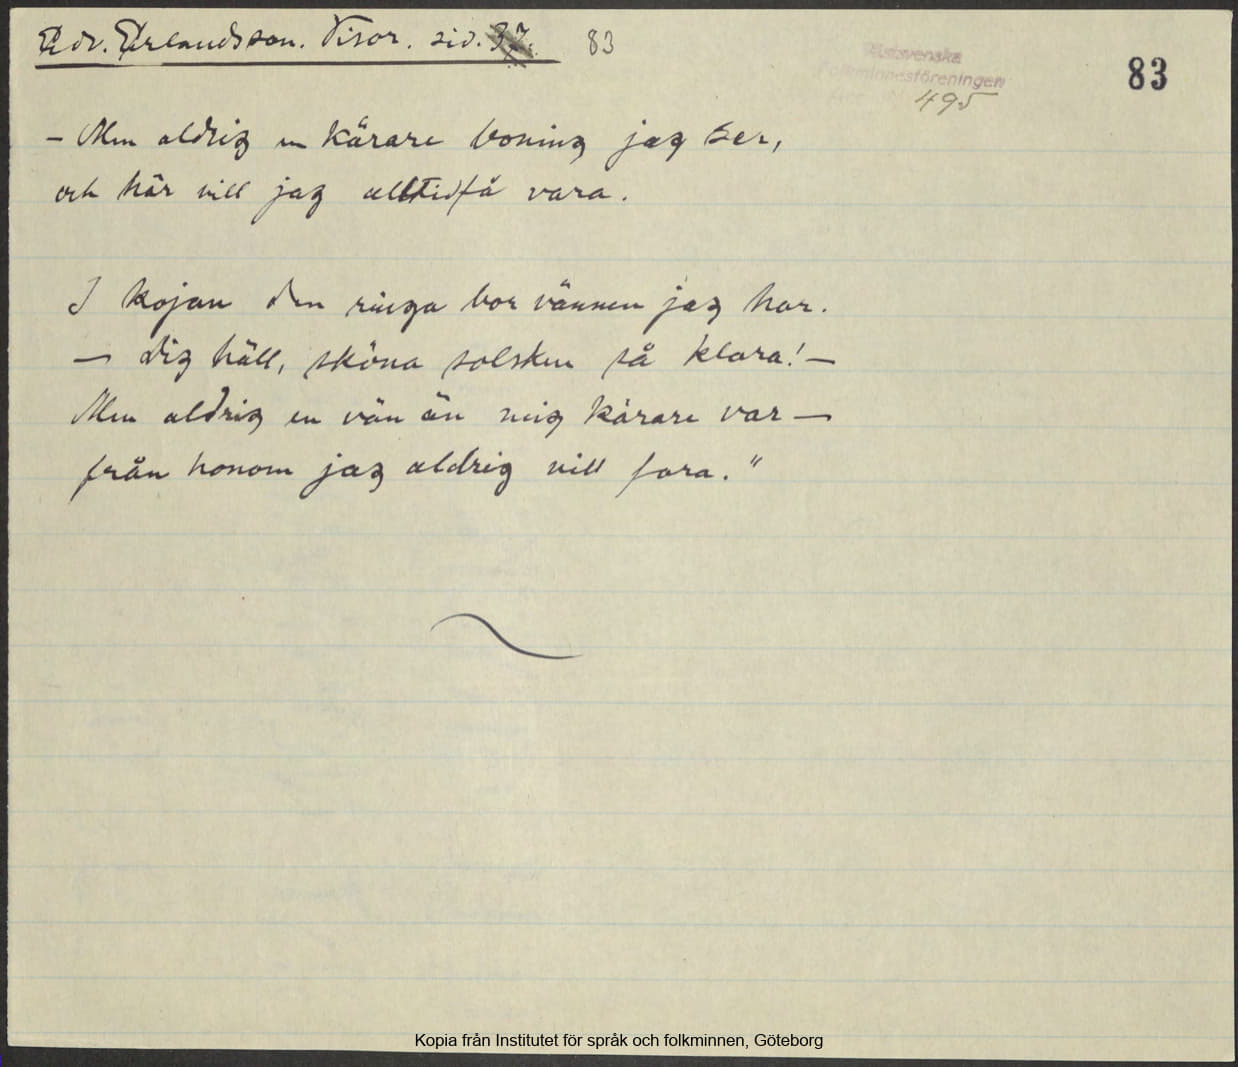 Edv. Erlandsson. Visor. sid. 37. 83
Västsvenska
Folkminnesföreningen
495
83
– Men aldrig en kärare boning jag ser,
och här vill jag alltid få vara.
I kojan den ringa bor vännen jag har.
— dig häll, sköna solsken så klara! —
Men aldrig en vän än mig kärare var —
från honom jag aldrig vill fara."
Kopia från Institutet för språk och folkminnen, Göteborg